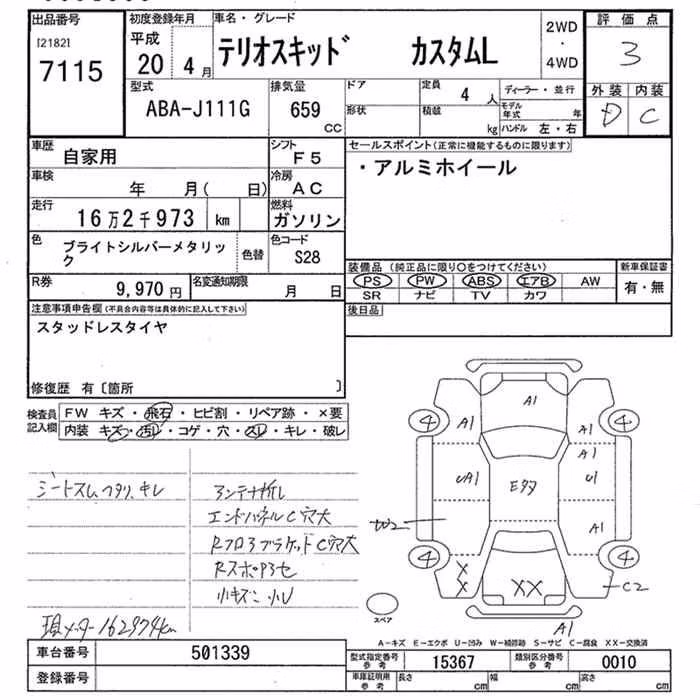 出品番号 初度登録年月 車名・グレード 評価点
[2182]
7115
平成
20 4月
テリオスキッド カスタムL
2WD
・
4WD
3
型式 排気量 ドア 定員 4 人 ディーラー・並行 外装 内装
ABA-J111G 659 CC
形状 積載 kg モデル年式 年
ハンドル 左・右
D C
車歴 自家用 シフト F5
セールスポイント(正常に機能するものに限ります)
・アルミホイール
車検 年 月( 日) 冷房 AC
走行 16万2千973 km 燃料 ガソリン
色 ブライトシルバーメタリック 色替 色コード S28
装備品 (純正品に限り○をつけてください) 新車保証書
PS PW ABS エアB AW 有・無
SR ナビ TV カワ
R券 9,970円 名変通知期限 月 日
後日品
注意事項申告欄(不具合内容等は具体的に記入して下さい)
スタッドレスタイヤ
修復歴 有〔箇所 〕
検査員記入欄
FW キズ・飛石・ヒビ割・リペア跡・×要
内装 キズ・汚レ・コゲ・穴・スレ・キレ・破レ
シートスレ、ヘタリ、キレ
アンテナ折レ
エンドパネルC穴大
Rフロアブラケット C穴大
小キズ 凹
現メーター162974km
A1
A1 A1
4 4
A1
UA1 Eタタ U1
W2 A1
4 4
X
X
XX C2
A1
スペア
A-キズ E-エクボ U-凹み W-補修跡 S-サビ C-腐食 XX-交換済
車台番号 501339
型式指定番号 参考 15367 類別区分番号 参考 0010
登録番号
車庫証明用 参考 長さ cm 幅 cm 高さ cm